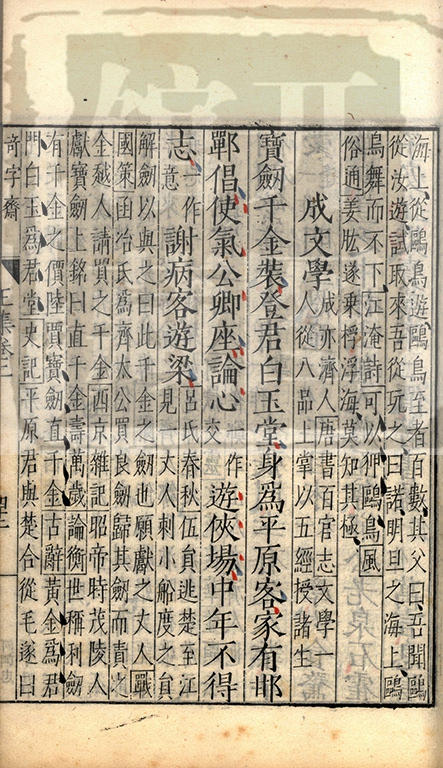 海上從鷗鳥遊鷗鳥至者百數其父曰吾聞鷗
從汝遊試取來吾從玩之曰諾明旦之海上鷗
鳥舞而不下江淹詩可以狎鷗鳥風
俗通姜肱遂乘桴浮海莫知其極
成文學
成亦濟人唐書百官志文學一
人從八品上掌以五經授諸生
寶劒千金裝登君白玉堂身爲平原客家有邯
鄲倡使氣公卿座論心一作交遊俠塲中年不得
志一作意謝病客遊梁
呂氏春秋伍員逃楚至江
見一丈人刺小船度之員
解劒以與之曰此千金之劒也願獻之丈人戰
國策函冶氏爲齊太公買良劒歸其劒而責之
金越人請買之千金西京雜記昭帝時茂陵人
獻寶劒上銘曰直千金壽萬歲論衡世稱利劒
有千金之價陸賈寶劒直千金古辭黃金爲君
門白玉爲君堂史記平原君與楚合從毛遂曰
奇字齋